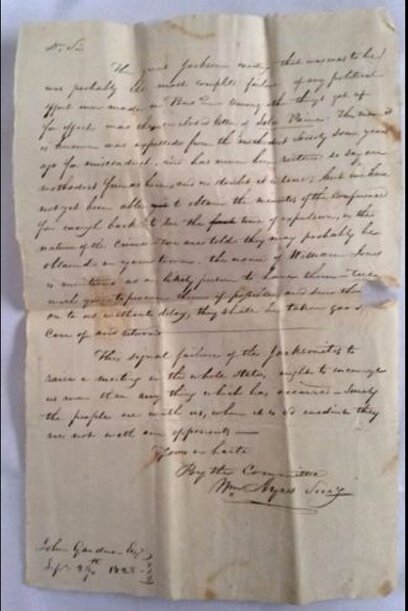 Dr Sir
The great Jackson meeting that was to be
was probably the most complete failure of any political
effort ever made in among the things got up
for effect was the enclosed letter of Solo. The man it
is known was expelled from the methodist Society some years
ago for misconduct, and has never been restored so say our
methodist friends here, and no doubt it is true; but we have
not yet been able to obtain the minutes of the Conference
far enough back to See the time of expulsion, or the
nature of the Crime we are told they may probably be
obtained in your town. the name of William Jones
is mentioned as a likely person to have them We
wish you to procure them if possible, and send them
on to us without delay, they shall be taken good
care of and returned
This signal failure of the Jacksonites to
raise a meeting in the whole State, ought to encourage
us more than any thing which has occurred Surely
the people are with us, when it is so evident they
are not with our opponents
Yours in haste
By the Committee
Wm Ayres Secy
John Gardner Esqr
Sepr 29th 1828